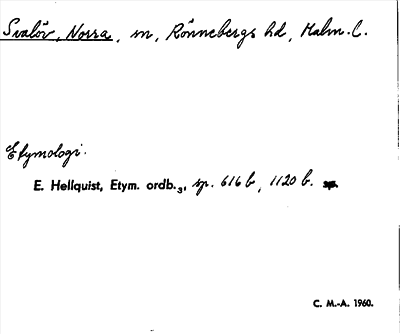 Svalöv, Norra, sn, Rönnebergs hd, Malm. l.
Etymologi.
E. Hellquist, Etym. ordb.3, sp. 616 b, 1120 b.
C. M.-A. 1960.